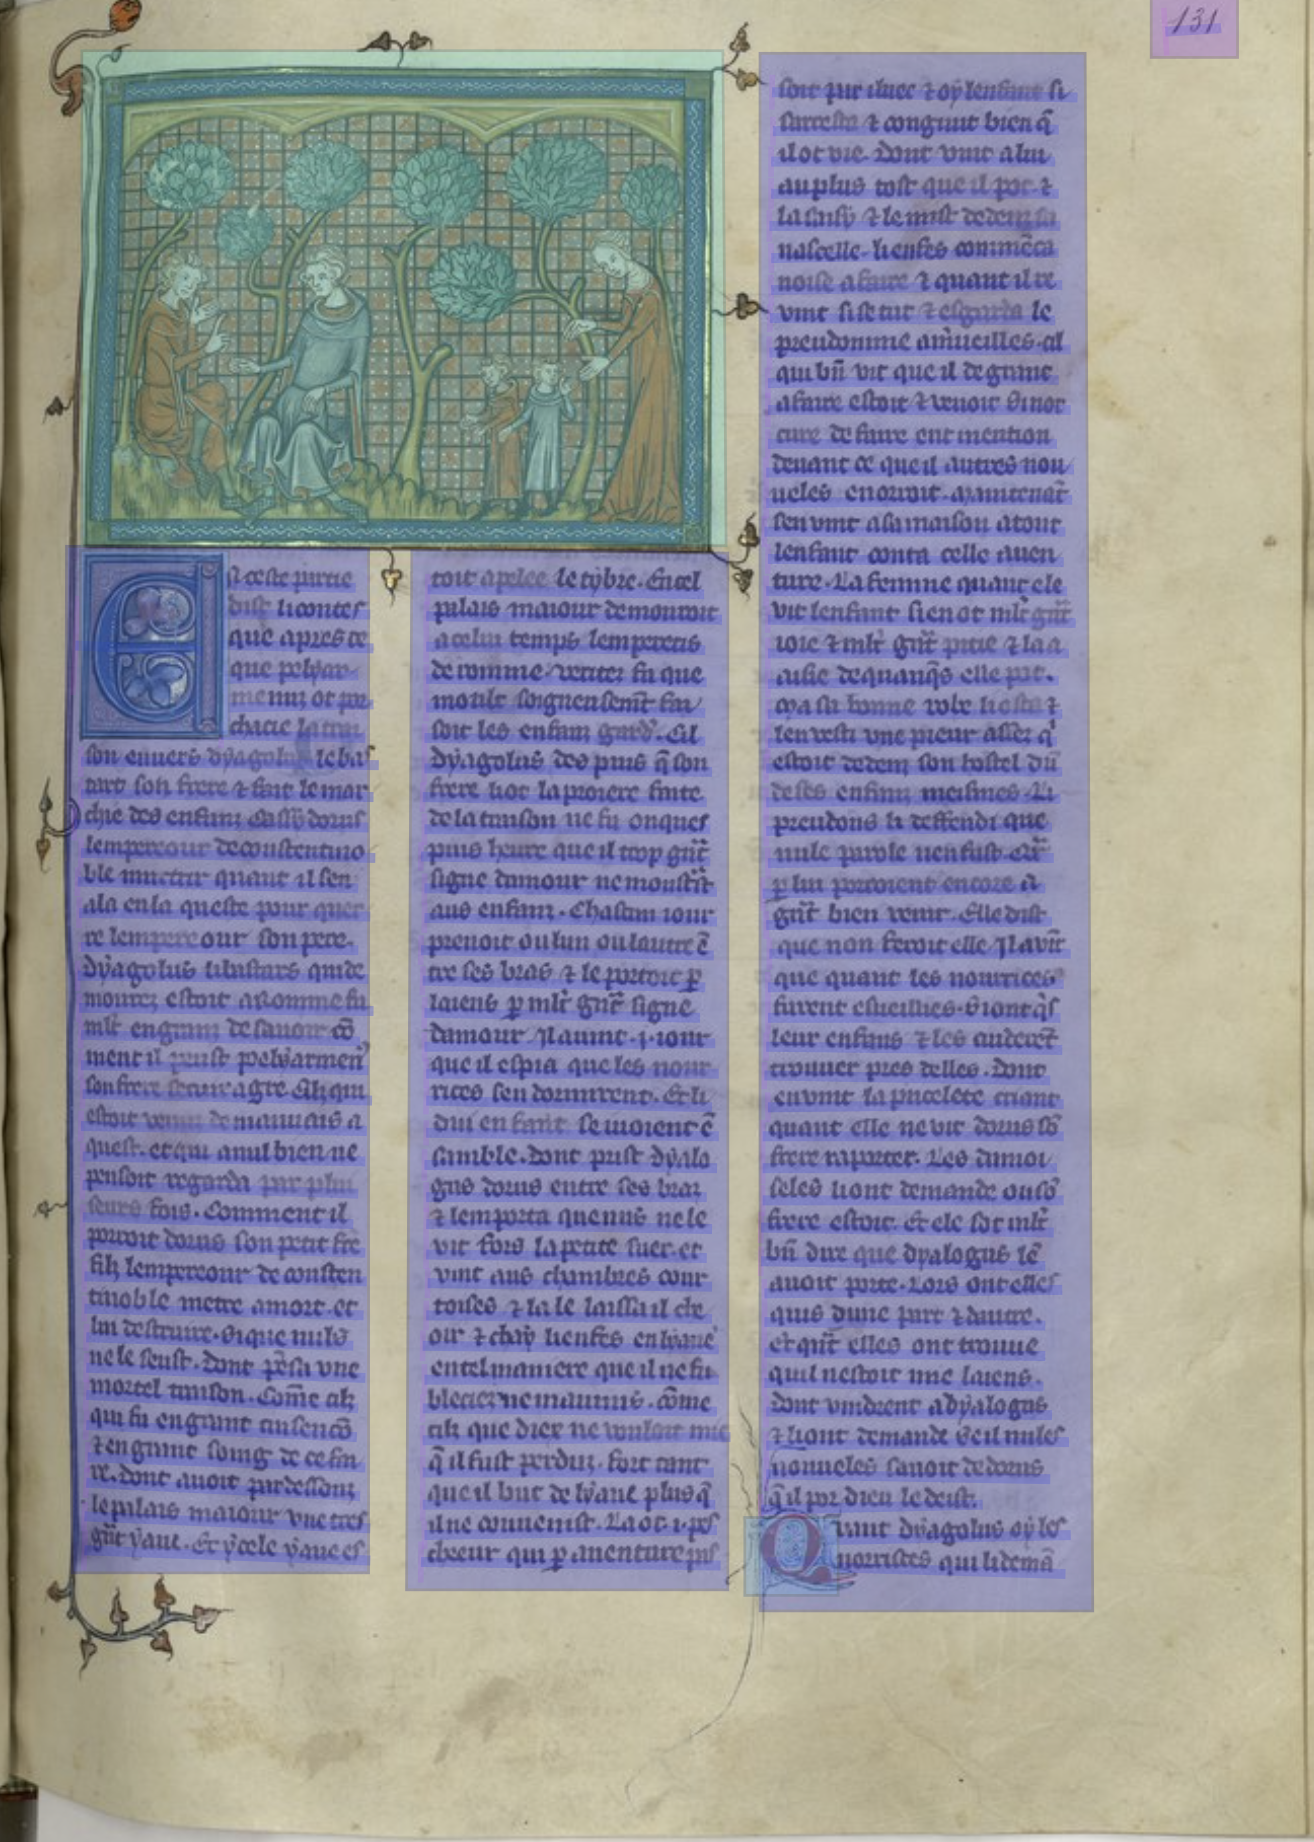 131
A ceste partie
dist li contes
que apres ce
que pelyar
menuz ot pur
chacie la trai
son enuers dyagolus le bas
tart son frere ⁊ fait le mar
chie des enfanz cassydorus
lempereour de constentino
ble murtrir quant il sen
ala en la queste pour quer
re lempereour son pere.
dyagolus li bastars qui de
mourez estoit a romme fu
ml̃t en grant de sauoir cõ
ment il peust pelyarmen᷒
son frere seruir a gre. Cilz qui
estoit venuz de mauuais a
quest. et qui a nul bien ne
pensoit regarda par plu
seurs fois. Comment il
porroit dorus son petit fre
filz lempereour de consten
tinoble metre a mort. et
lui destruire. si que nulz
ne le seust. dont pẽsa vne
mortel traison. Com̃e cilz
qui fu en grant
⁊ en grant soing de ce fai
re. dont auoit par dessouz
le palais maiour vne tres
gñt yaue. Et ycele yaue es
toit apelee le tybre. En cel
palais maiour demouroit
a celui temps lempereris
de romme. veritez fu que
moult soigneusem̃t fai
soit les enfanz gard᷒. Cil
dyagolus des puis q̃ son
frere li ot la proiere faite
de la traison ne fu onques
puis heure que il trop gñt
signe damour ne moustrast
aus enfanz. Chascun iour
prenoit ou lun ou lautre ẽ
tre ses bras ⁊ le portoit ꝑ
laiens ꝑ ml̃t gñt signe
damour. Il auint .i. iour
que il espia que les nour
rices sen dormirent. Et li
dui enfant se iuoient ẽ
samble. dont prist dyalo
gus dorus entre ses braz
⁊ lemporta que nus ne le
vit fors la petite suer. et
vint aus chambres cour
toises ⁊ la le laissa il che
oir ⁊ chay li enfes en lyaue
en tel maniere que il ne fu
bleciez ne maumis. cõme
cilz que diex ne vouloit mie
q̃ il fust perduz. fors tant
que il but de lyaue plus q̃
il ne couuenist. La ot .i. pes
cheeur qui ꝑ auenture pas
soit par iluec ⁊ oy lenfant si
sarresta ⁊ congnut bien q̃
il ot vie. Dont vint a lui
au plus tost que il pot. ⁊
la saisy ⁊ le mist dedenz sa
nascelle. li enfes commẽca
noise a faire ⁊ quant il re
vint si se tut ⁊ esgarda le
preudomme a m̃ueilles. cil
qui bñ vit que il de grant
afaire estoit ⁊ venoit si not
cure de faire ent mention
deuant ce que il autres nou
ueles en orroit. Maintenãt
sen vint a sa maison a tout
lenfant conta celle auen
ture. La femme quant ele
vit lenfant si en ot ml̃t gñt
ioie ⁊ ml̃t gñt pitie ⁊ la a
aisie de quanq̃s elle pot.
Mais sa bonne robe li osta ⁊
len vesti vne pieur assez q̃
estoit dedenz son hostel dũ
de ses enfanz meismes. Li
preudons li deffendi que
nule parole nen fust. car
ꝑ lui porroient encore a
gñt bien venir. Elle dist
que non feroit elle. Il auĩt
que quant les nourrices
furent esueillies. si ont q̃s
leur enfans ⁊ les cuderẽt
trouuer pres delles. Dont
en vint la pucelete criant
quant elle ne vit dorus sõ
frere raporter. Les damoi
seles li ont demande ou sõ
frere estoit. Et ele sot ml̃t
bñ dire que dyalogus lẽ
auoit porte. Lors ont elles
quis dune part ⁊ dautre.
et qñt elles ont trouue
quil nestoit mie laiens.
dont vindrent a dyalogus
⁊ li ont demande se il nules
nonueles sauoit de dorus
q̃ il por dieu le deist.
Quant dyagolus oy les
norrices qui li demã